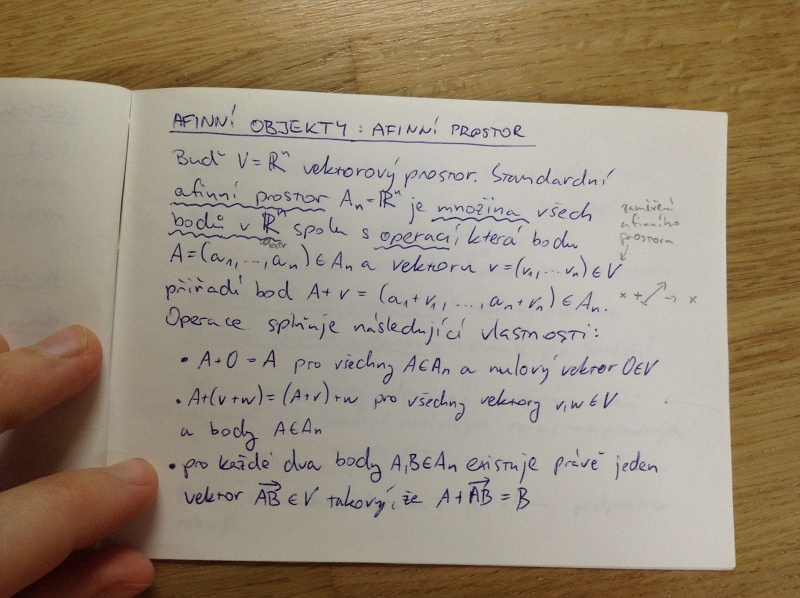 AFINNÍ OBJEKTY : AFINNÍ PROSTOR
Buď V = ℝⁿ vektorový prostor. Standardní
afinní prostor Aₙ = ℝⁿ je množina všech
bodů v ℝⁿ spolu s operací, která bodu
A = (a₁, ..., aₙ) ∈ Aₙ a vektoru v = (v₁, ... vₙ) ∈ V
přiřadí bod A + v = (a₁ + v₁, ..., aₙ + vₙ) ∈ Aₙ.
Operace splňuje následující vlastnosti:
• A + 0 = A pro všechny A ∈ Aₙ a nulový vektor 0 ∈ V
• A + (v + w) = (A + v) + w pro všechny vektory v, w ∈ V
a body A ∈ Aₙ
• pro každé dva body A, B ∈ Aₙ existuje právě jeden
vektor A͞B⃗ ∈ V takový, že A + A͞B⃗ = B
zaměření
afinního
prostoru
x + → x